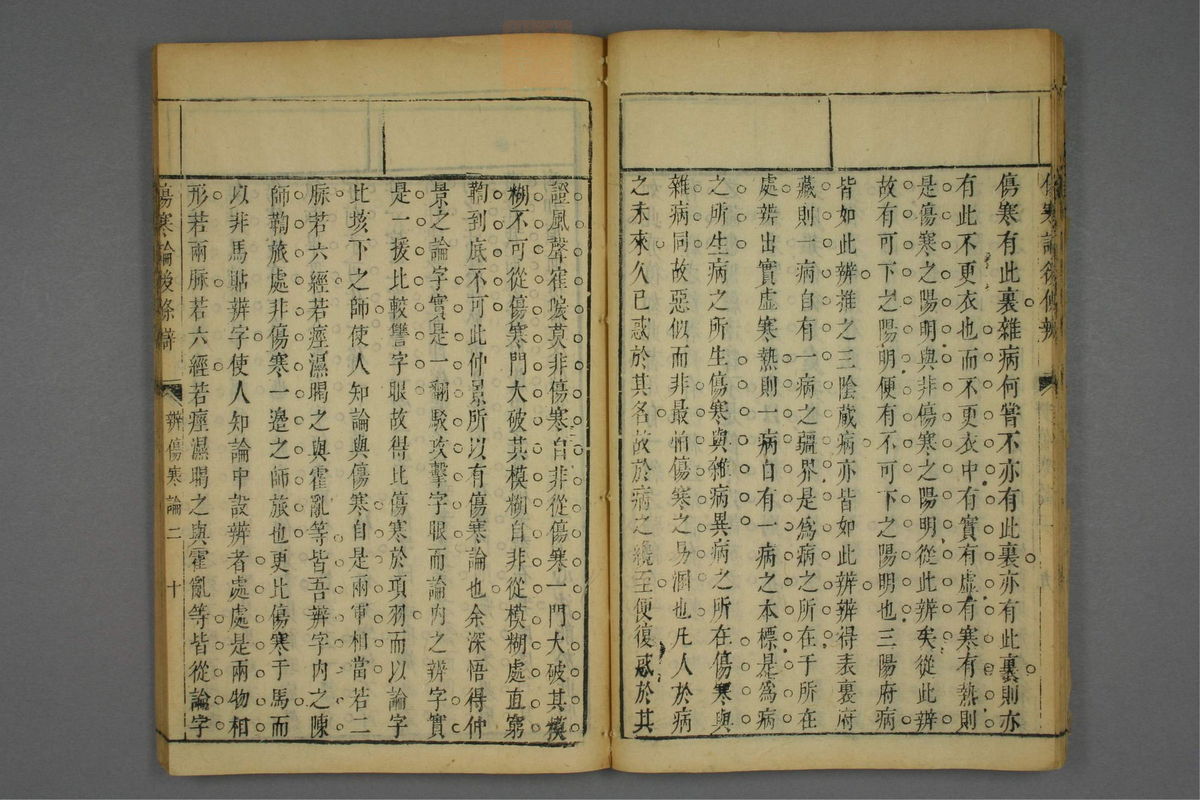 傷寒論後條辨
傷寒有此裏雜病何嘗不亦有此裏亦有此裏則亦
有此不更衣也而不更衣中有實有虛有寒有熱則
是傷寒之陽明與非傷寒之陽明從此辨矣從此辨
故有可下之陽明便有不可下之陽明也三陽府病
皆如此辨推之三陰藏病亦皆如此辨辨得表裏府
藏則一病自有一病之疆界是爲病之所在于所在
處辨出實虛寒熱則一病自有一病之本標是爲病
之所生病之所生傷寒與雜病異病之所在傷寒與
雜病同故惡似而非最怕傷寒之易溷也凡人於病
之未來久已惑於其名故於病之纔至便復惑於其
證風聲寉唳莫非傷寒自非從傷寒一門大破其模
糊不可從傷寒門大破其模糊自非從模糊處直窮
到底不可此仲景所以有傷寒論也余深悟得仲
景之論字實是一翻駁攻擊字眼而論內之辨字實
是一援比較讐字眼故得比傷寒於項羽而以論字
比垓下之師使人知論與傷寒自是兩軍相當若二
脈若六經若痙濕暍之與霍亂等皆吾辨字內之陳
師鞫旅處非傷寒一邊之師旅也更比傷寒于馬而
以非馬貼辨字使人知論中設辨者處處是兩物相
形若兩脈若六經若痙濕暍之與霍亂等皆從論字
傷寒論後條辨
辨傷寒論二
十